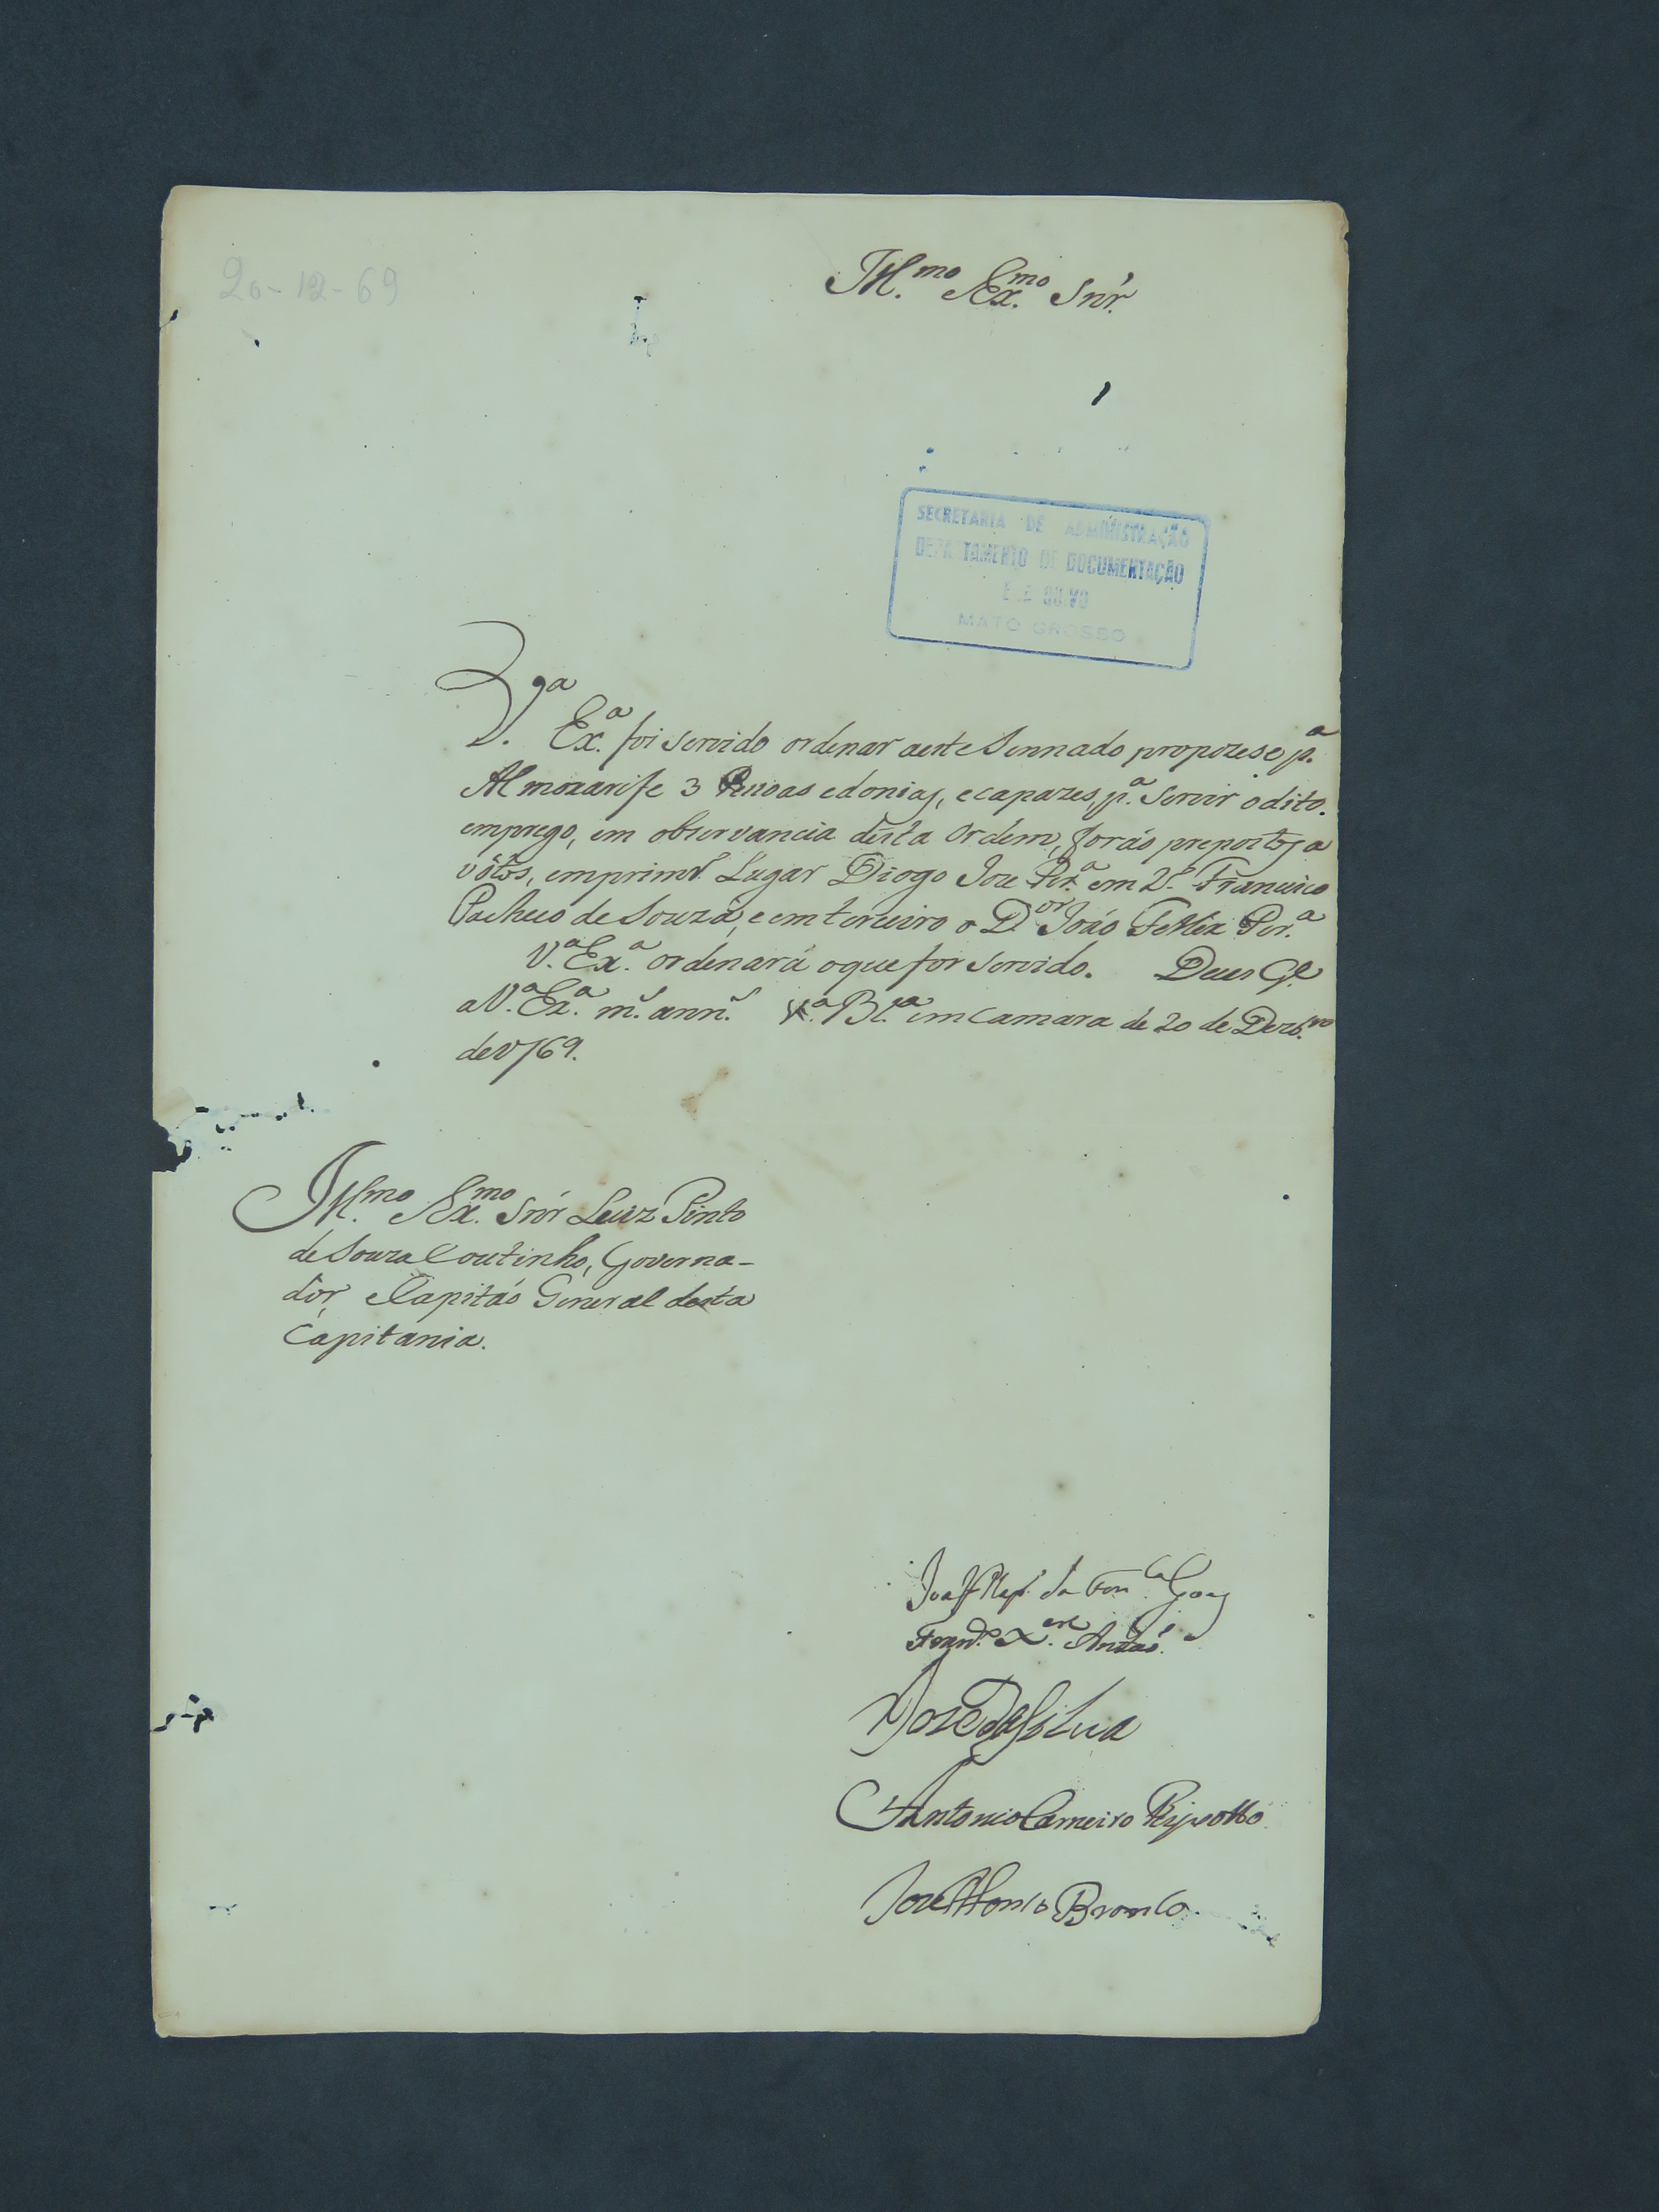 20-12-69
Ill.mo Ex.mo Snr.
SECRETARIA DE ADMINISTRAÇÃO
DEPARTAMENTO DE DOCUMENTAÇÃO
E ARQUIVO
MATO GROSSO
V.ga
Ex.a foi servido ordenar aeste Sennado propozese p.a
Almoxarife 3 Pessoas edonias, ecapazes, p.a Servir odito
emprego, em observancia desta Ordem, forão propostos a
vótos, emprimr.o Lugar Diogo Joze Per.a em 2.o Francisco
Pacheco de Souza, eem terceiro o D.or João Fellix Per.a
V.a Ex.a ordenará oque for servido. Deus G.e
aV.a Ex.a m.s ann.s V.a B.la em Camara de 20 de Dezb.ro
de 1769.
Ill.mo Ex.mo Snr Luiz Pinto
de Souza Coutinho, Governa-
dor, eCapitão General desta
Capitania.
da Fon.ca
Fran.co X.er
Joze DaSilva
Antonio Carneiro
Joze Afonso Bronco